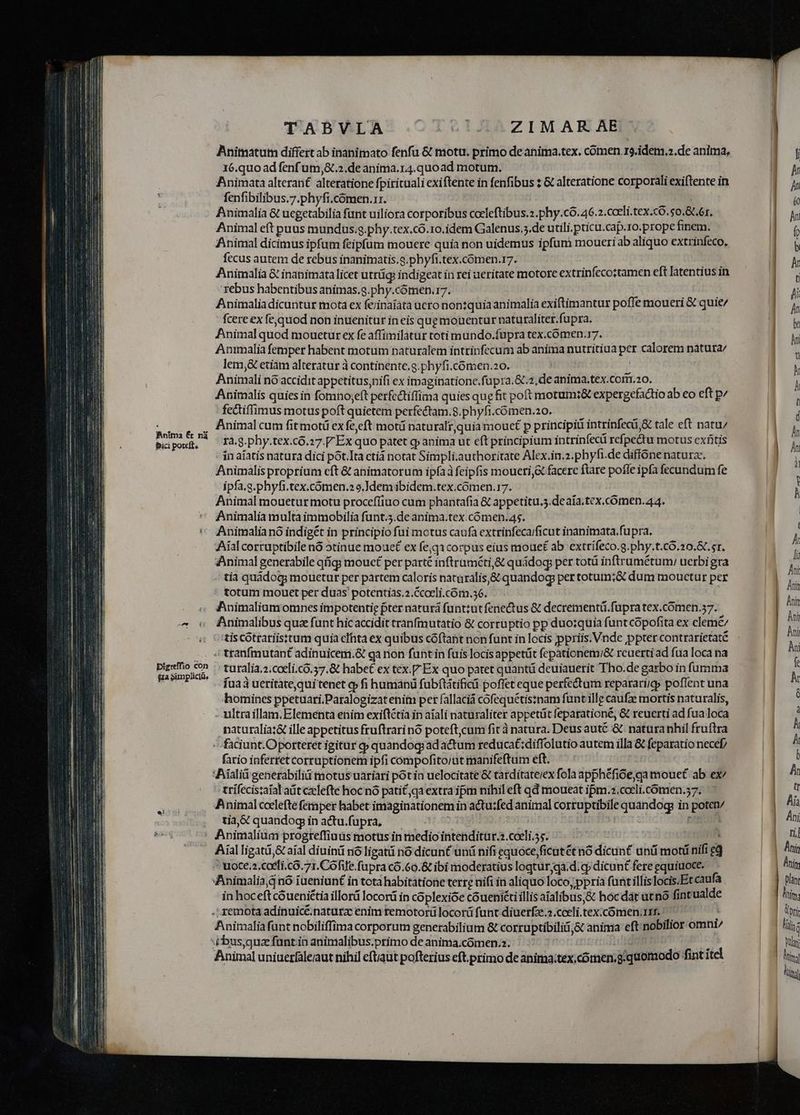 TABVLA ZIMARAE
Animatum differt ab inanimato sensu & motu. primo de anima.tex. cõmen.19.idem.2.de anima,
16.quo ad sensum,&.2.de anima.14.quoad motum.
Animata alterant̃ alteratione spirituali existente in sensibus : & alteratione corporali existente in
sensibilibus.7.physi.cõmen.11.
Animalia & uegetabilia sunt uiliora corporibus cœlestibus.2.phy.cõ.46.2.cœli.tex.cõ.50.&.61.
Animal est puus mundus.8.phy.tex.cõ.10.idem Galenus.3.de utili.pticu.cap.10.prope finem.
Animal dicimus ipsum seipsum mouere quia non uidemus ipsum moueri ab aliquo extrinseco.
secus autem de rebus inanimatis.8.physi.tex.cõmen.17.
Animalia & inanimata licet utrũq; indigeat in rei ueritate motore extrinseco:tamen est latentius in
rebus habentibus animas.8.phy.cõmen.17.
Animalia dicuntur mota ex se:inaíata uero non:quia animalia existimantur posse moueri & quie/
scere ex se,quod non inuenitur in eis que mouentur naturaliter.supra.
Animal quod mouetur ex se assimilatur toti mundo.supra tex.cõmen.17.
Animalia semper habent motum naturalem intrinsecum ab anima nutritiua per calorem natura/
lem,& etiam alteratur à continente.8.physi.cõmen.20.
Animali nõ accidit appetitus,nisi ex imaginatione.supra.&.2.de anima.tex.com.20.
Animalis quies in somno,est perfectissima quies que fit post motum:& expergefactio ab eo est p/
fectissimus motus post quietem perfectam.8.physi.cõmen.20.
Animal cum fit motũ ex se,est motũ naturalr̃,quia mouet̃ p principiũ intrinsecũ,& tale est natu/
Anima ẽt nã
dici potest.
ra.8.phy.tex.cõ.27. Ex quo patet q̃ anima ut est principium intrinsecũ respectu motus exñtis
in aíatis natura dici põt.Ita etiã notat Simpli.authoritate Alex.in.2.physi.de diffõne naturæ.
Animalis proprium est & animatorum ipsa à seipsis moueri,& facere stare posse ipsa secundum se
ipsa.8.physi.tex.cõmen.29.Idem ibidem.tex.cõmen.17.
Animal mouetur motu processiuo cum phantasia & appetitu.3.de aía.tex.cõmen.44.
Animalia multa immobilia sunt.3.de anima.tex.cõmen.45.
Animalia nõ indigẽt in principio sui motus causa extrinseca:sicut inanimata.supra.
Aíal corruptibile nõ ↄtinue mouet̃ ex se,qa corpus eius mouet̃ ab extrĩseco.8.phy.t.cõ.20.&.51.
Animal generabile qñq; mouet̃ per partẽ instrumẽti,& quãdoq; per totũ instrumẽtum/ uerbi gra
tia quãdoq; mouetur per partem caloris naturalis,& quandoq; per totum:& dum mouetur per
totum mouet per duas potentias.2.cœli.cõm.36.
Animalium omnes impotentie pter naturã sunt:ut senectus & decrementũ.supra tex.cõmen.37.
Animalibus quæ sunt hic accidit transmutatio & corruptio pp duo:quia sunt cõposita ex elemẽ/
tis cõtrariis:tum quia elñta ex quibus cõstant non sunt in locis ppriis.Vnde ppter contrarietatẽ
transmutant̃ adinuicem.& qa non sunt in suis locis appetũt sepationem:& reuerti ad sua loca na
Digressio con
tra Simpliciũ.
turalia.2.cœli.cõ.37.& habet̃ ex tex. Ex quo patet quantũ deuiauerit Tho.de garbo in summa
sua à ueritate,qui tenet q̃ si humanũ substãtificũ posset eque perfectum reparari:q̃ possent una
homines ppetuari.Paralogizat enim per fallaciã cõsequẽtis:nam sunt ille causæ mortis naturalis,
ultra illam.Elementa enim existẽtia in aíali naturaliter appetũt separationẽ, & reuerti ad sua loca
naturalia:& ille appetitus frustrari nõ potest,cum sit à natura. Deus autẽ & natura nhil frustra
faciunt.Oporteret igitur q̃ quandoq; ad actum reducat̃:dissolutio autem illa & separatio neces/
sario inferret corruptionem ipsi composito/ut manifestum est.
Aíaliũ generabiliũ motus uariari põt in uelocitate & tarditate:ex sola apphẽsiõe,qa mouet̃ ab ex/
trísecis:aíal aũt cæleste hoc nõ patit̃,qa extra ipm nihil est qd moueat ipm.2.cœli.cõmen.37.
Animal cœleste semper habet imaginationem in actu:sed animal corruptibile quandoq; in poten/
tia,& quandoq; in actu.supra.
Animalium progressiuus motus in medio intenditur.2.cœli.35.
Aíal ligatũ,& aíal diuinũ nõ ligatũ nõ dicunt̃ unũ nisi equoce,sicut ẽt nõ dicunt̃ unũ motũ nisi eq
uoce.2.cœli.cõ.71.Cõsile.supra cõ.60.& ibi moderatius loqtur,qa.d.q̃ dicunt̃ fere equiuoce.
Animalia,q nõ ĩueniunt̃ in tota habitatione terre nisi in aliquo loco,ppria sunt illis locis.Et causa
in hoc est cõueniẽtia illorũ locorũ in cõplexiõe cõueniẽti illis aíalibus,& hoc dat ut nõ sint ualde
remota adinuicẽ.naturæ enim remotorũ locorũ sunt diuersæ.2.cœli.tex.cõmen.111.
Animalia sunt nobilissima corporum generabilium & corruptibiliũ,& anima est nobilior omni/
bus,quæ sunt in animalibus.primo de anima.cõmen.2.
Animal uniuersale:aut nihil est:aut posterius est.primo de anima.tex.cõmen.8.quomodo sint itel